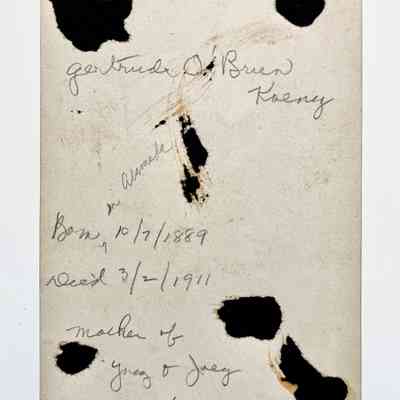 Gertrude O'Brien
Koeny
in Alameda
Born, 10/7/1889
Died 3/2/1911
mother of
Ynez & Joey